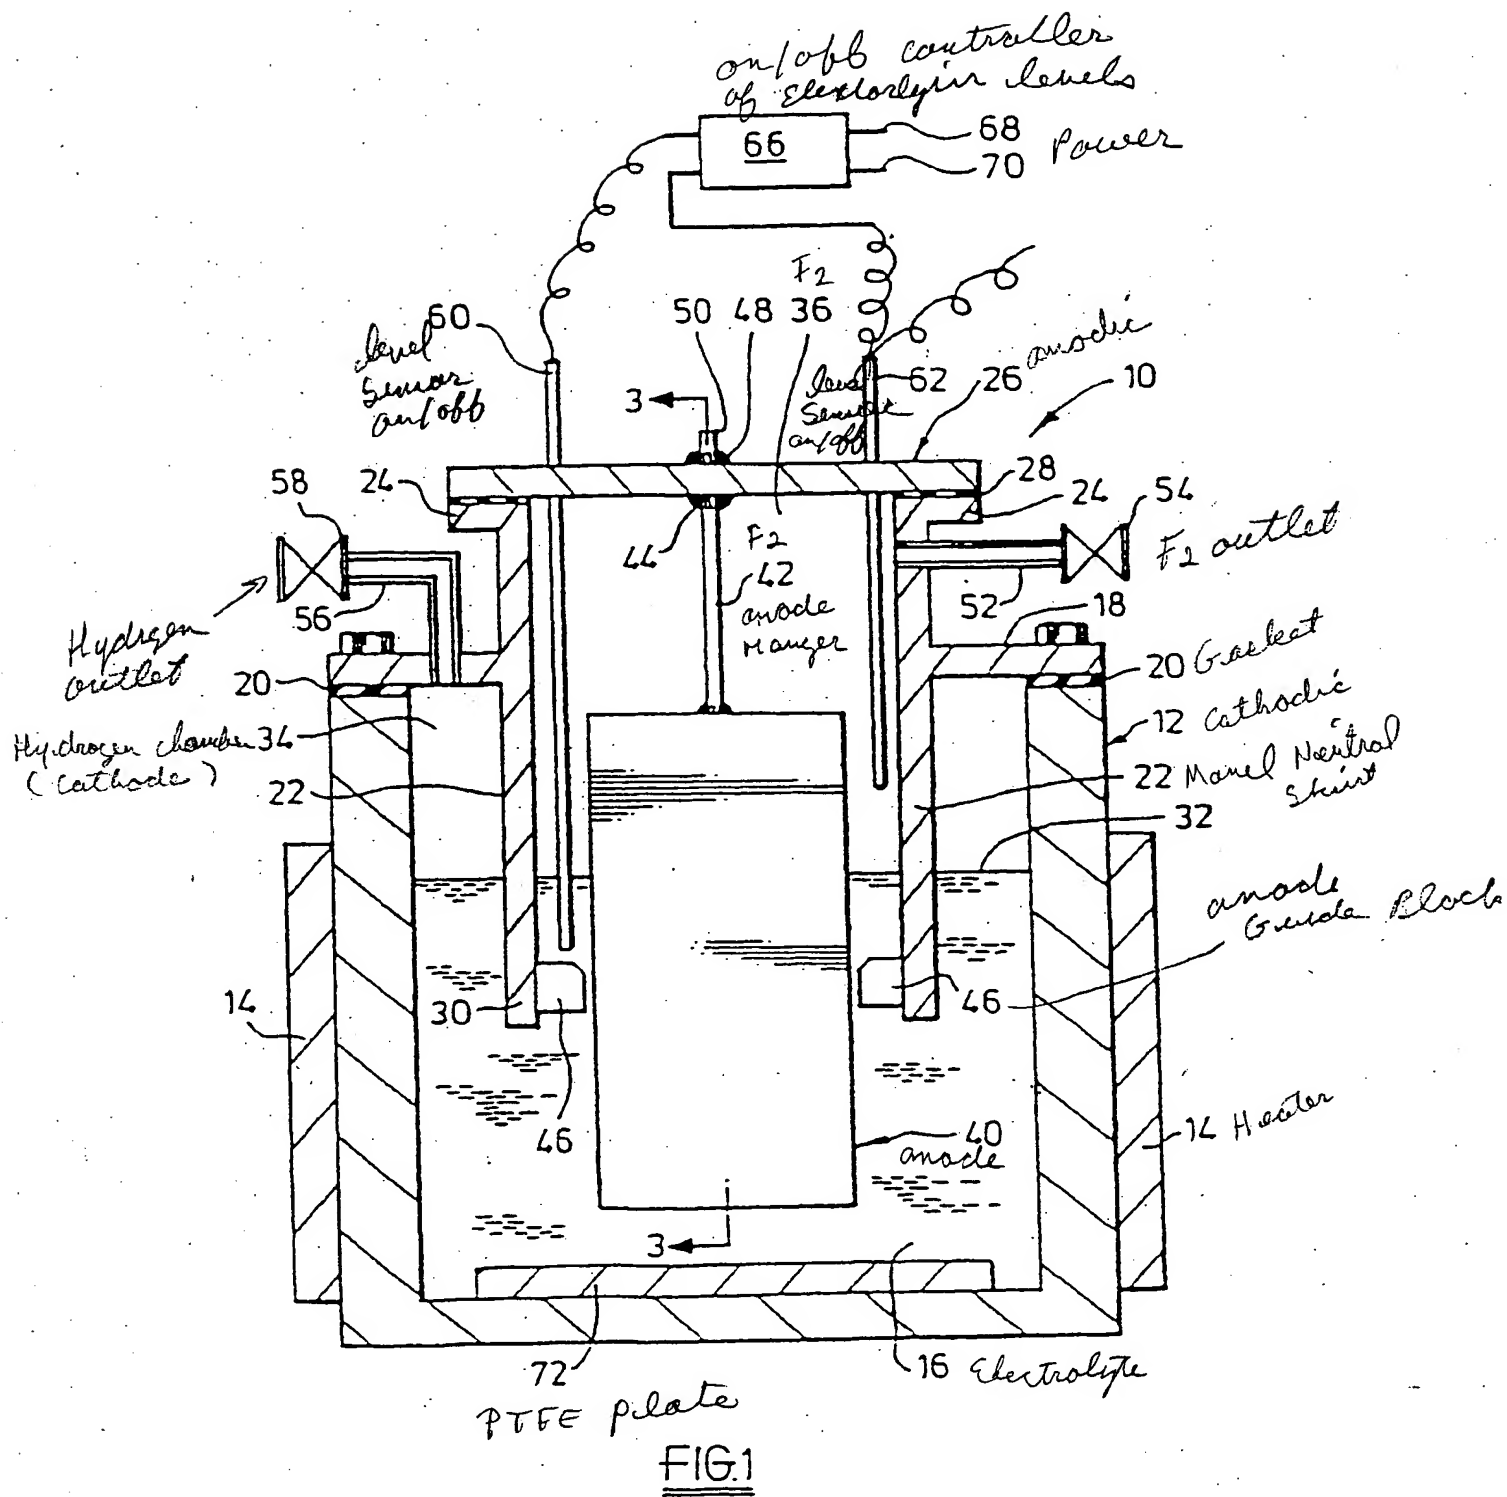 on/off controller
of Electorlyin levels
66
68
70 Power
F2
60
50 48 36
level
sensor
on/off
3
level
sensor
on/off
62 26 anodic
10
58
24
28
24 54
44 F2
42
anode
Hanger
F2 outlet
56
52 18
Hydrgen
outlet
20
20 Gasket
Hydrogen chamber 34
(cathode)
12 Cathodic
22
22 Monel Neutral
Skirt
32
anode
Guide Block
14
30
46
46
40
anode
14 Heater
3
72
PTFE plate
16 Electrolyte
FIG.1